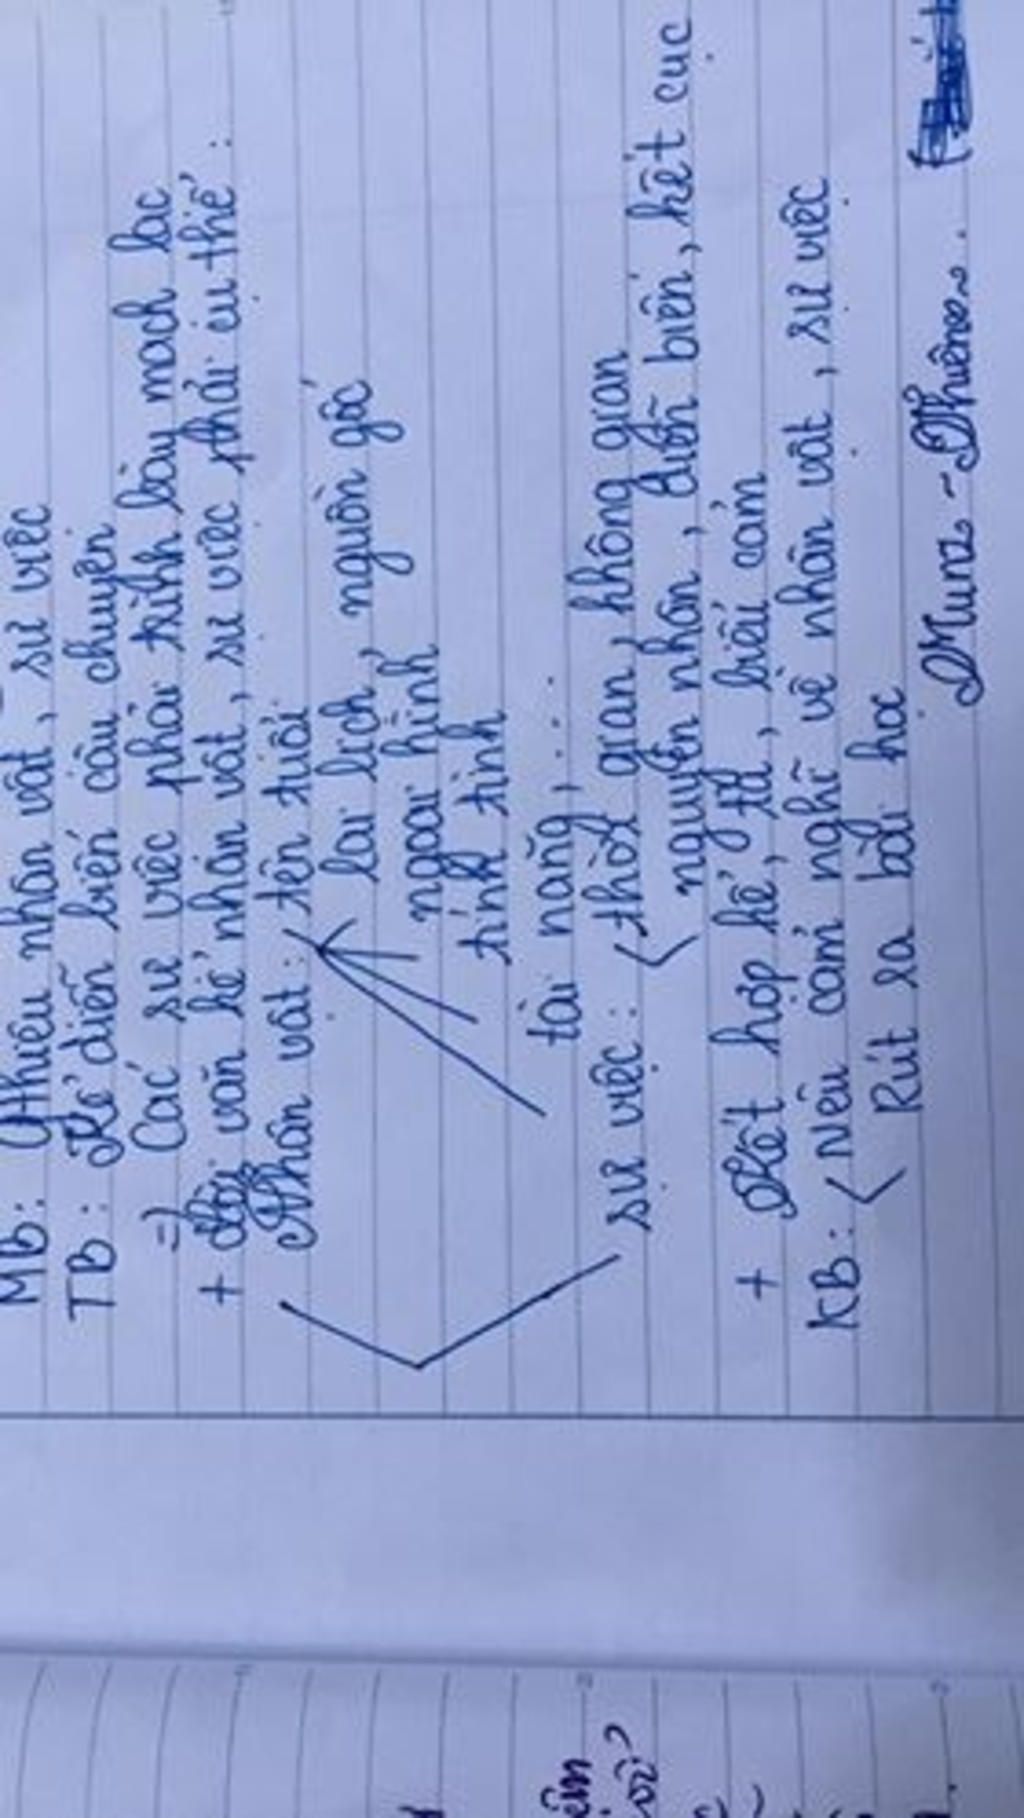 MB: Giới thiệu nhân vật, sự việc
TB: Kể diễn biến câu chuyện
=) Các sự việc phải trình bày mạch lạc
+ văn kể nhân vật, sự việc phải cụ thể:
Nhân vật: tên tuổi
lai lịch, nguồn gốc
ngoại hình
tính tình
tài năng,...
sự việc: thời gian, không gian
nguyên nhân, diễn biến, kết cục
+ Kết hợp kể, tả, biểu cảm
KB: Nêu cảm nghĩ về nhân vật, sự việc
Rút ra bài học